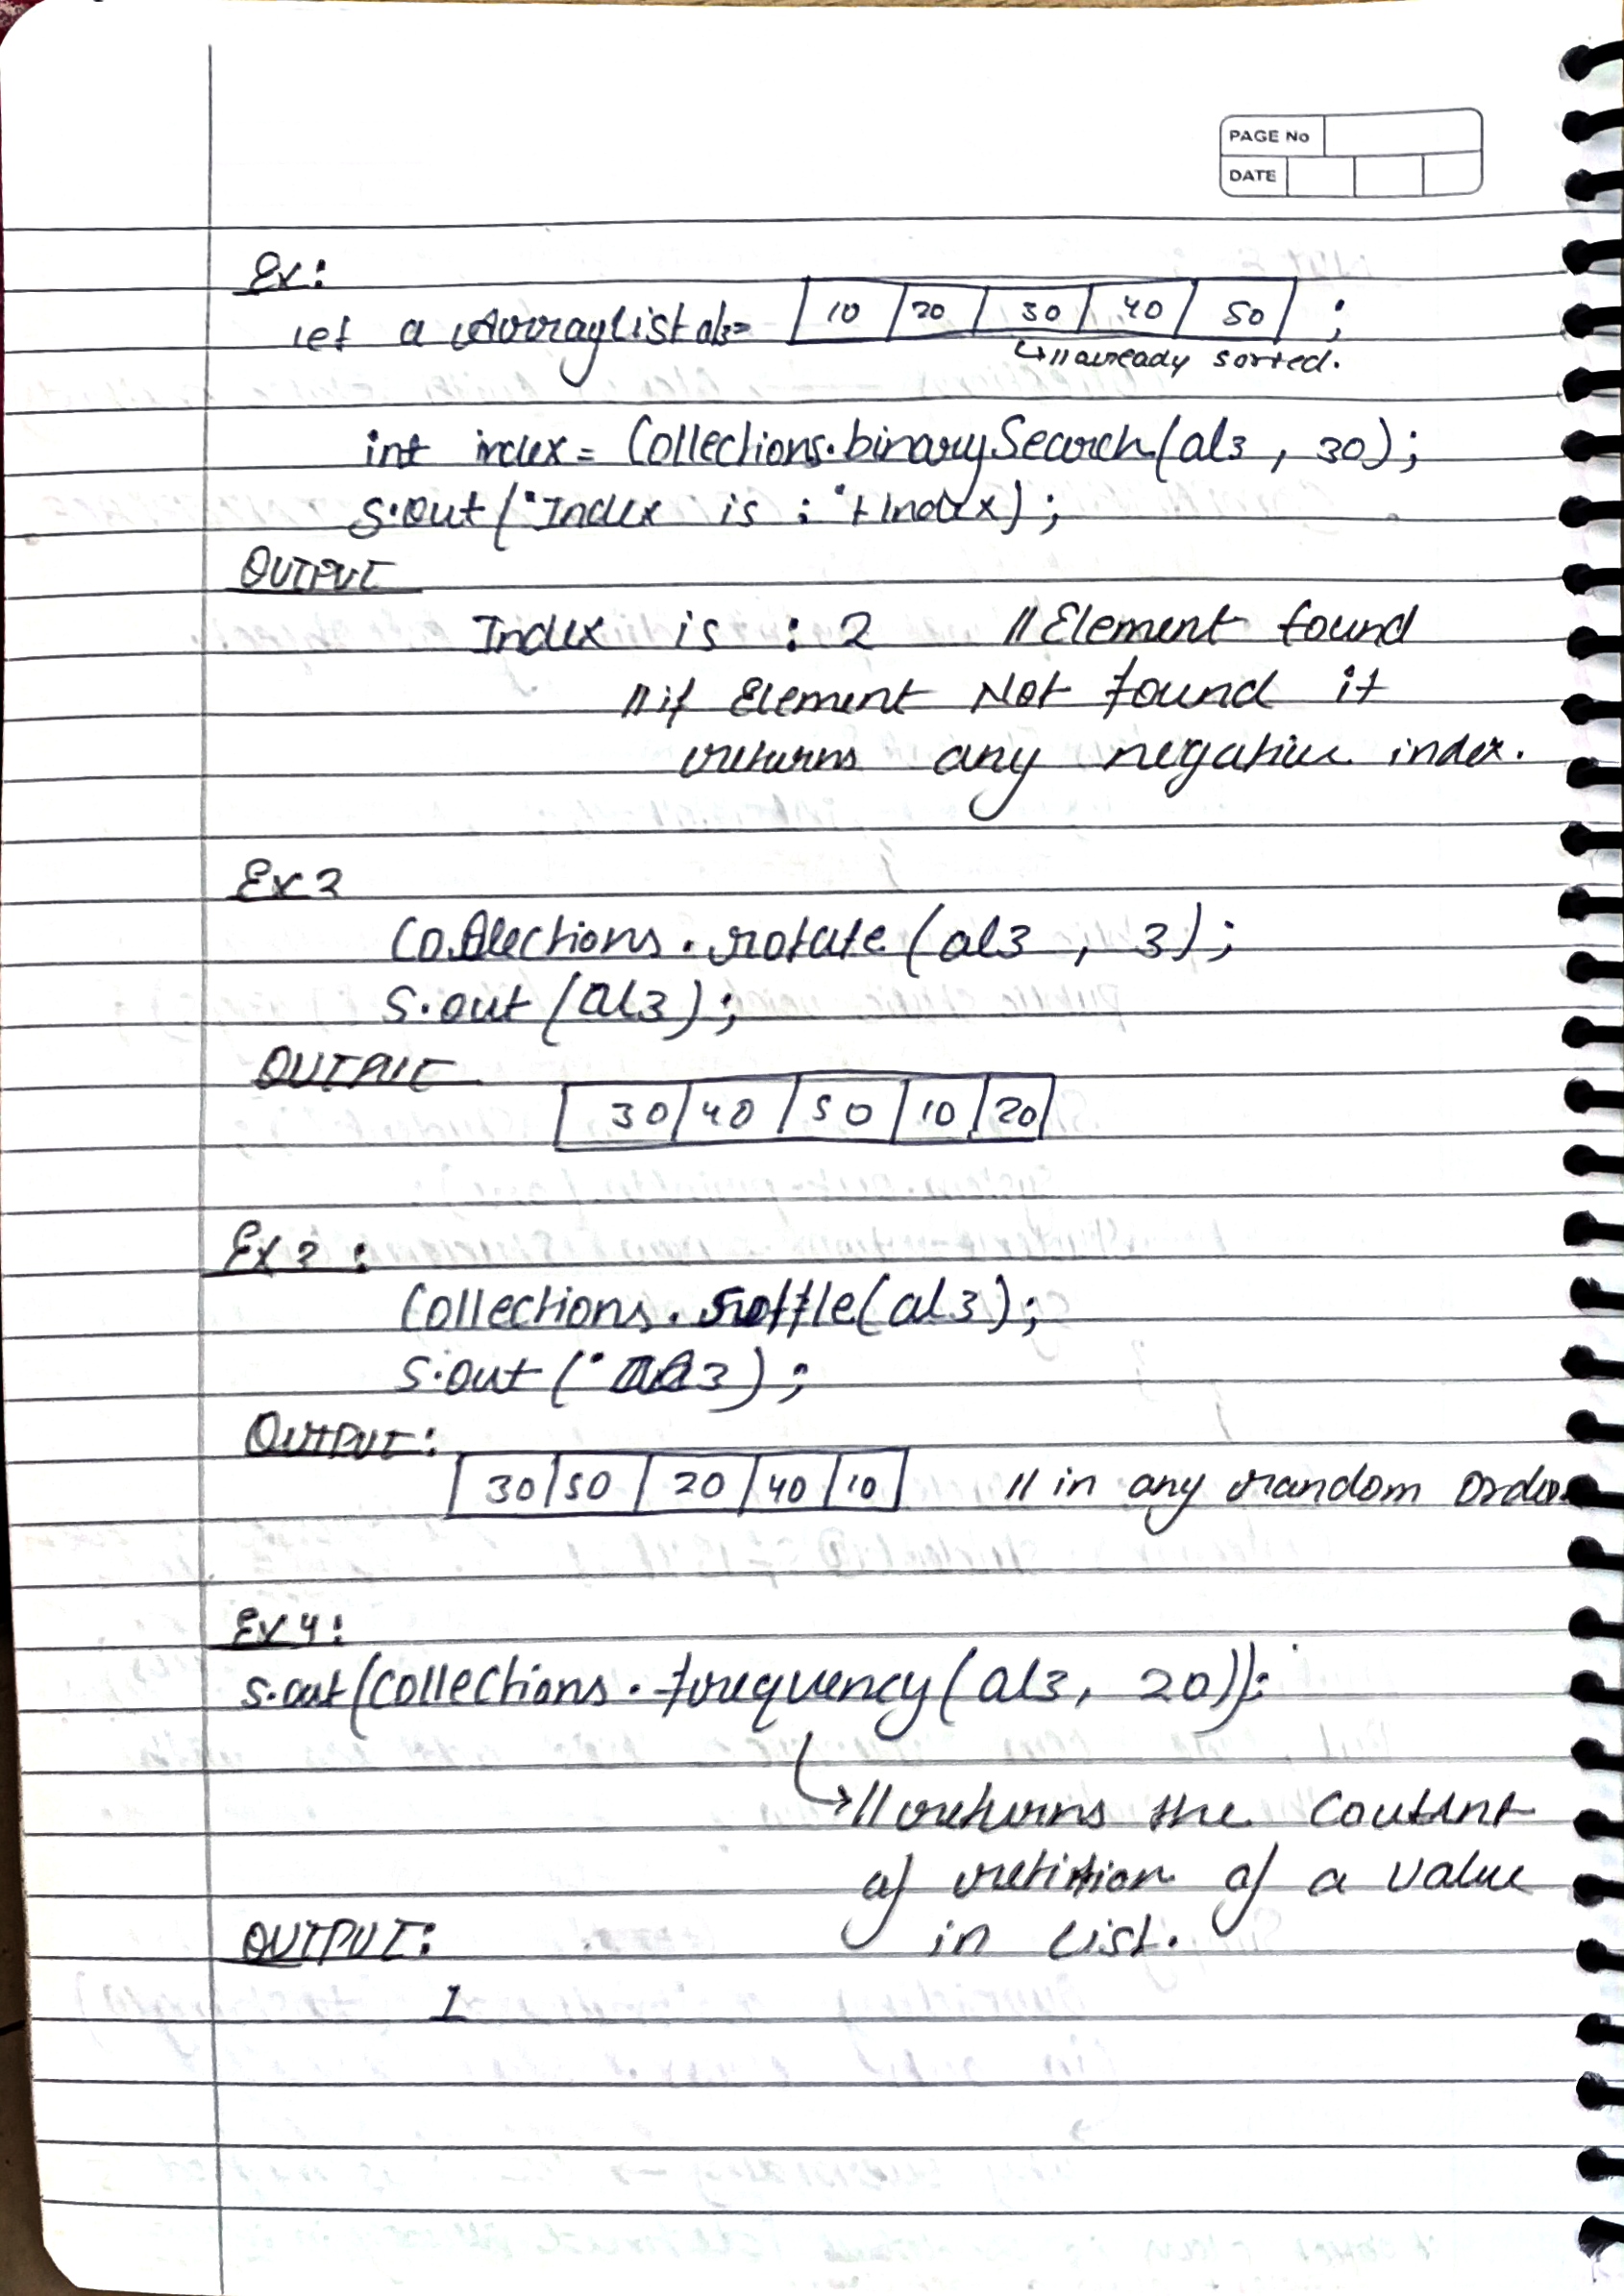 PAGE No
DATE
Ex:
let a ArrayList al3= 10 20 30 40 50 ;
↳ // already sorted.
int index = Collections.binarySearch(al3 , 30);
S.out("Index is : "+index);
OUTPUT
Index is : 2 // Element found
// if Element Not found it
returns any negative index.
Ex2
Collections.rotate(al3 , 3);
S.out(al3);
OUTPUT
30 40 50 10 20
Ex3 :
Collections.suffle(al3);
S.out("al3);
OUTPUT:
30 50 20 40 10 // in any random order
Ex4:
S.out(Collections.frequency(al3, 20));
↳ // returns the
of of a value
in List.
OUTPUT:
1